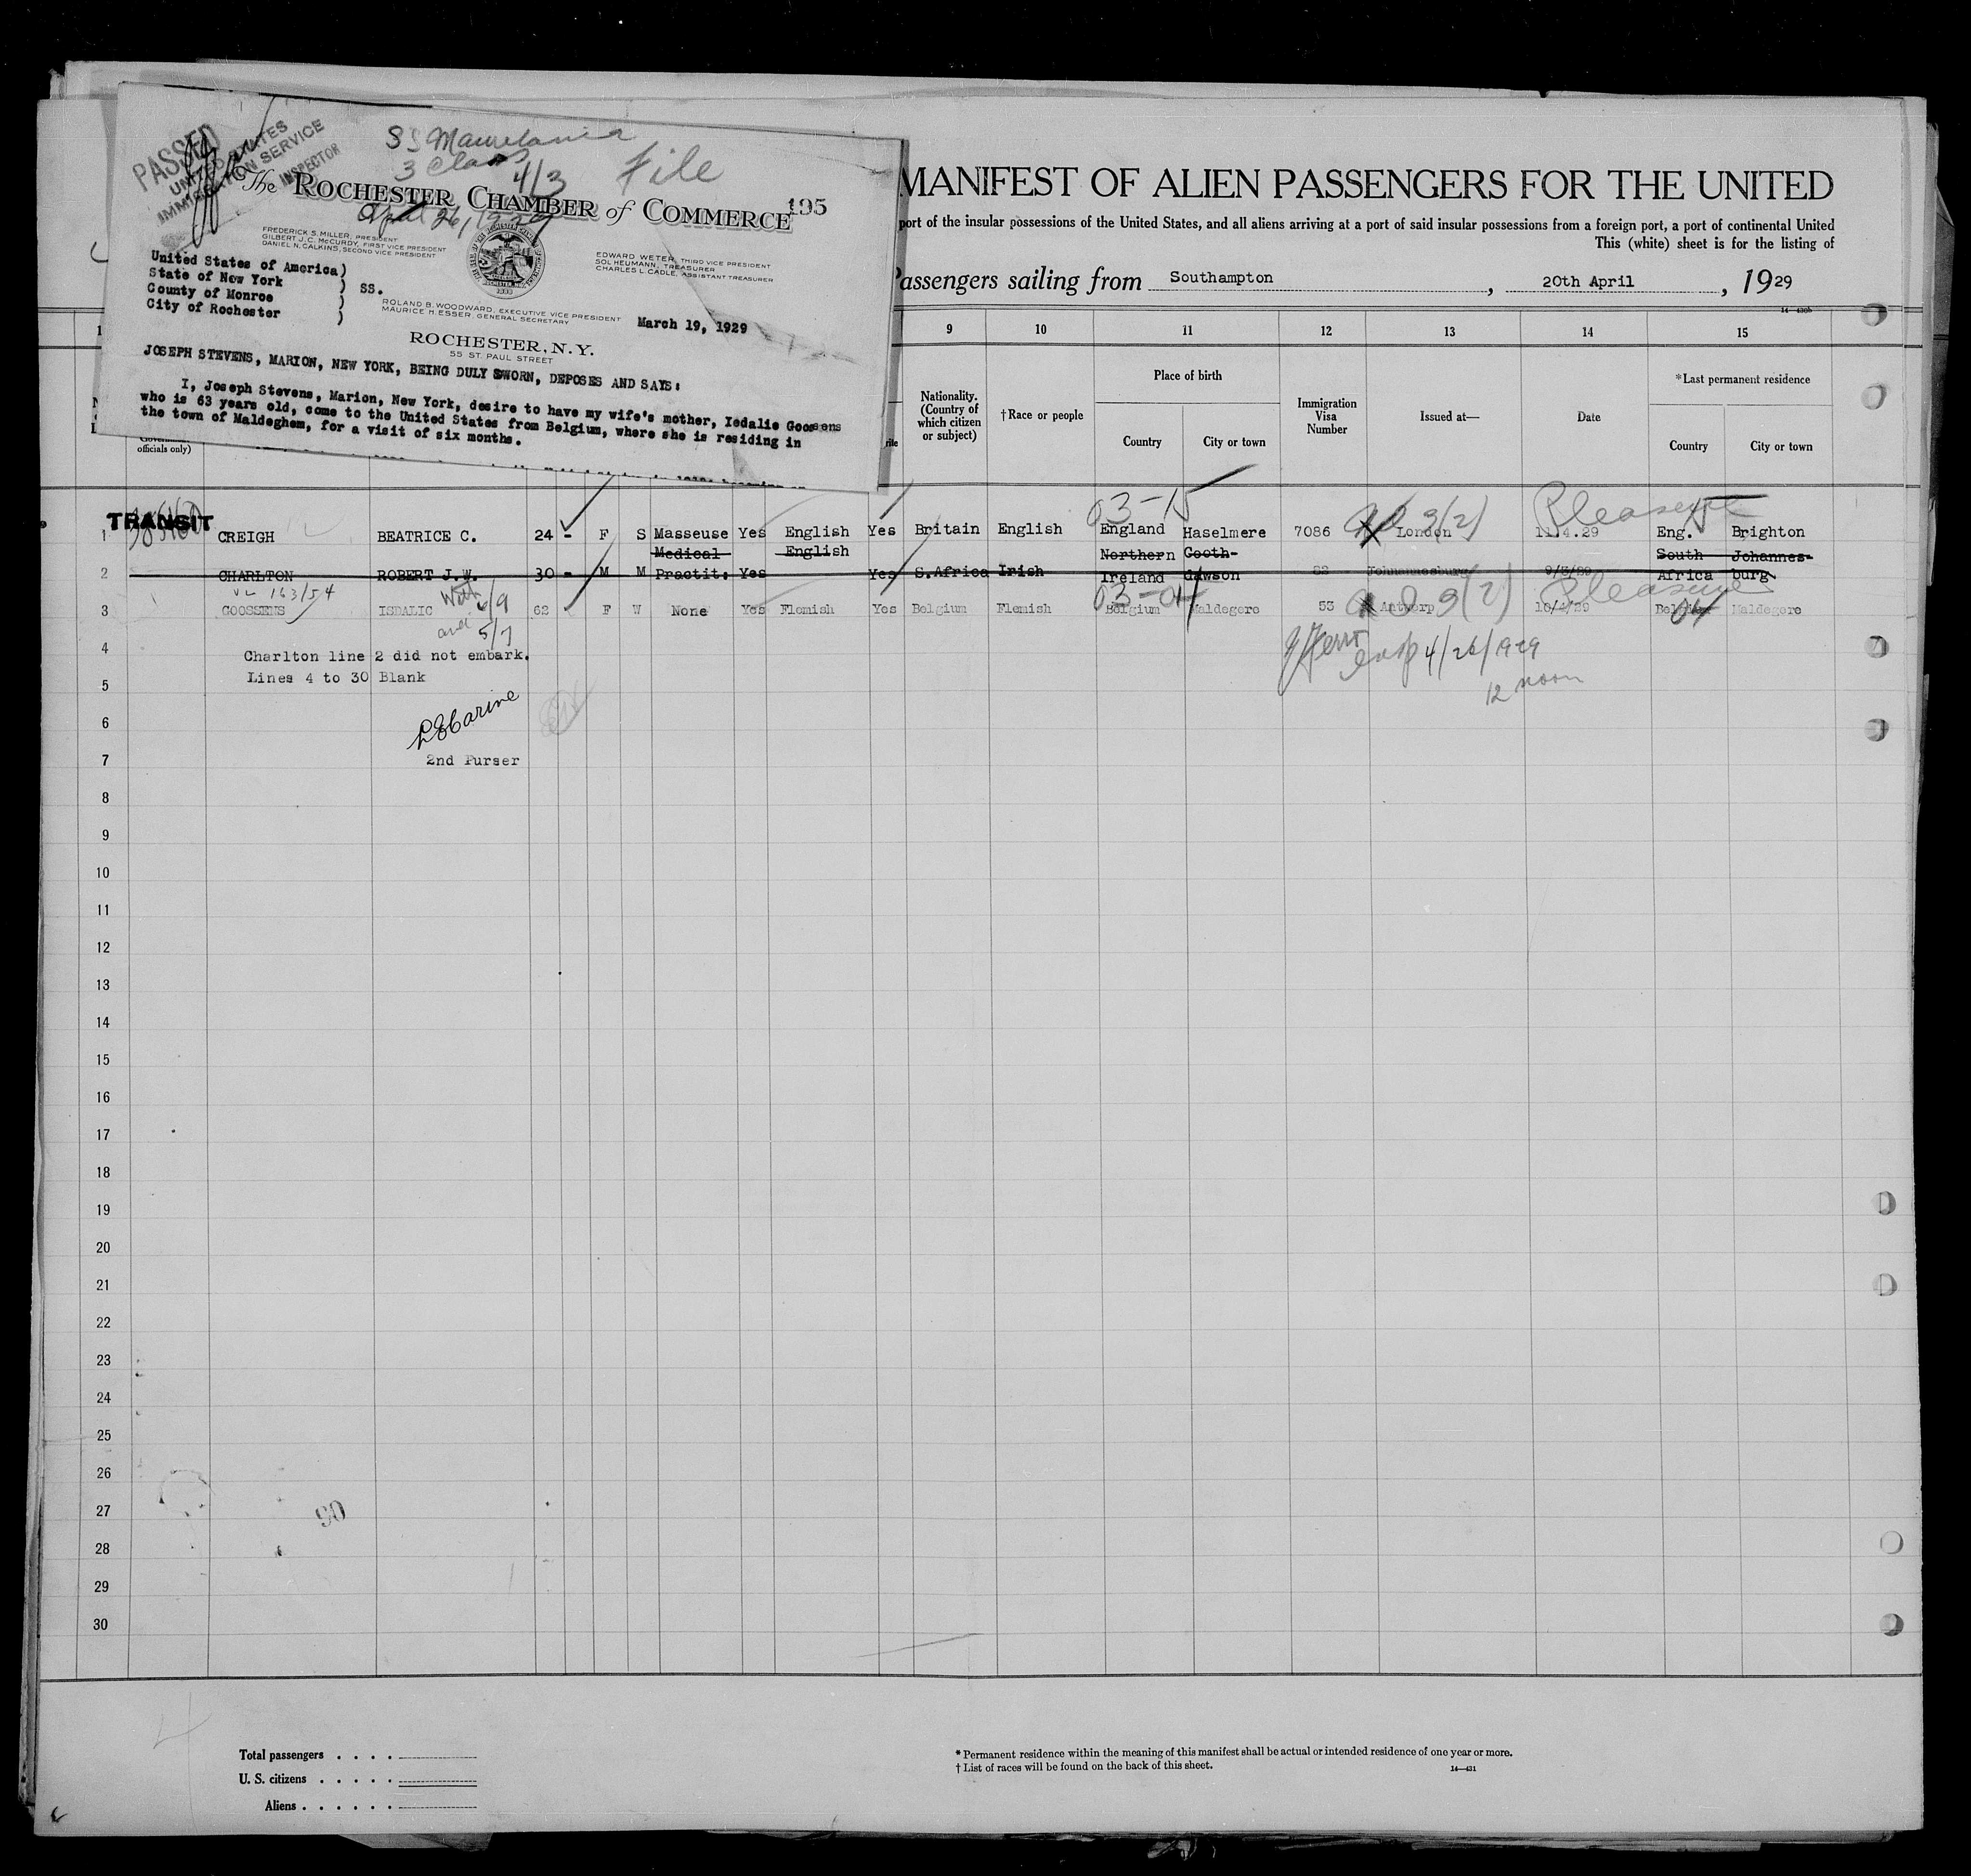 PASSED
UNITED STATES
IMMIGRATION SERVICE
INSPECTOR
SS Mauretania
3 Class
4/3
File
The ROCHESTER CHAMBER of COMMERCE
195
April 26, 1929
FREDERICK S. MILLER, PRESIDENT
GILBERT J.C. McCURDY, FIRST VICE PRESIDENT
DANIEL N. CALKINS, SECOND VICE PRESIDENT
EDWARD WETER, THIRD VICE PRESIDENT
SOL HEUMANN, TREASURER
CHARLES L. CADLE, ASSISTANT TREASURER
United States of America)
State of New York )
County of Monroe ) SS.
City of Rochester )
ROLAND B. WOODWARD, EXECUTIVE VICE PRESIDENT
MAURICE H. ESSER, GENERAL SECRETARY
March 19, 1929
ROCHESTER, N.Y.
55 ST. PAUL STREET
JOSEPH STEVENS, MARION, NEW YORK, BEING DULY SWORN, DEPOSES AND SAYS:
I, Joseph Stevens, Marion, New York, desire to have my wife's mother, Isdalie Goossens
who is 63 years old, come to the United States from Belgium, where she is residing in
the town of Maldeghem, for a visit of six months.
MANIFEST OF ALIEN PASSENGERS FOR THE UNITED
port of the insular possessions of the United States, and all aliens arriving at a port of said insular possessions from a foreign port, a port of continental United
This (white) sheet is for the listing of
Passengers sailing from Southampton, 20th April, 1929
14—430b
9 10 11 12 13 14 15
officials only)
Nationality. (Country of which citizen or subject)
†Race or people
Place of birth
Country
City or town
Immigration Visa Number
Issued at—
Date
*Last permanent residence
Country
City or town
03-15
Pleasure
TRANSIT
1 CREIGH BEATRICE C. 24 - F S Masseuse Yes English Yes Britain English England Haselmere 7086 London 3(2) 11.4.29 Eng. Brighton
Medical English Northern Gooth- South Johannes-
2 CHARLTON ROBERT J.W. 30 - M M Practit: Yes Yes S.Africa Irish Ireland dawson 82 Johannesburg 9/3/29 Africa burg
163/54
03-01
3(2)
Pleasure
3 GOOSSENS ISDALIC 62 F W None Yes Flemish Yes Belgium Flemish Belgium Maldegere 53 Antwerp 10/4/29 Belgium Maldegere
6/9
and 5/7
4 Charlton line 2 did not embark.
4/26/1929
5 Lines 4 to 30 Blank
12 noon
6
7 2nd Purser
8
9
10
11
12
13
14
15
16
17
18
19
20
21
22
23
24
25
26
27
28
29
30
Total passengers . . . .
U. S. citizens . . . . .
Aliens . . . . . .
* Permanent residence within the meaning of this manifest shall be actual or intended residence of one year or more.
† List of races will be found on the back of this sheet.
14—431